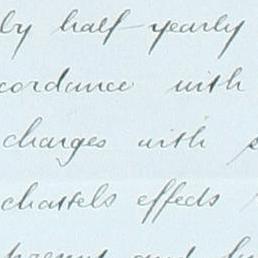 by half-yearly
cordance with
charges with
chattels effects
and